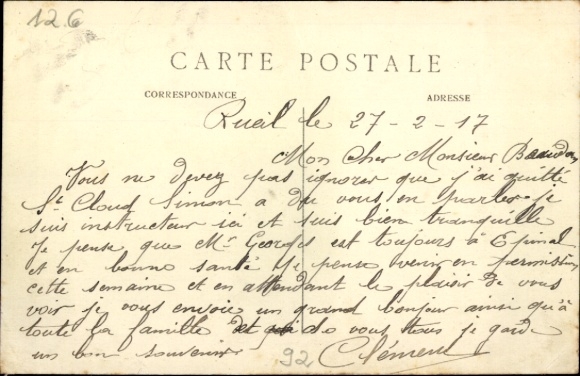 12.6
CARTE POSTALE
CORRESPONDANCE
ADRESSE
Rueil le 27-2-17
Mon Cher Monsieur
Vous ne devez pas ignorer que j'ai quitté
St Cloud Simon a du vous en parler. je
suis instructeur ici et suis bien tranquille
Je pense que Mr Georges est toujours à Epinal
et en bonne santé Je pense venir en permission
cette semaine et en attendant le plaisir de vous
voir je vous envoie un grand bonjour ainsi qu'à
toute la famille de vous tous je garde
un bon souvenir
Clément
92